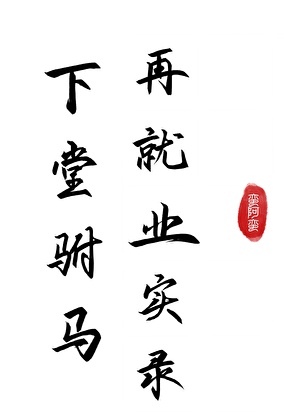 下堂驸马
再就业实录